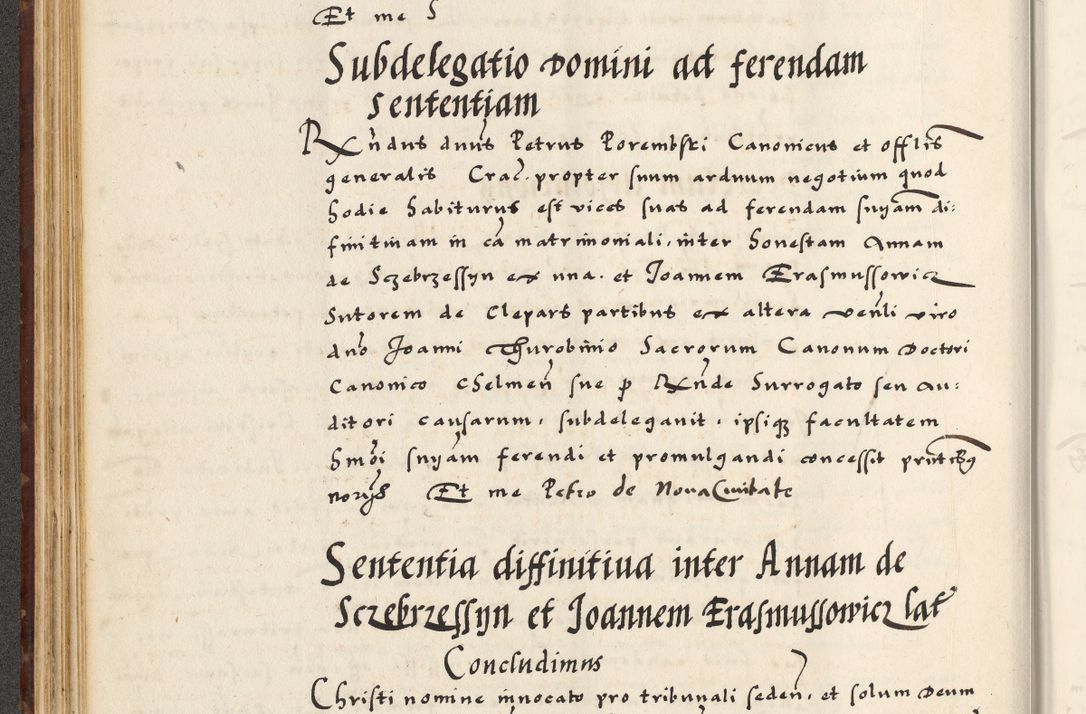 Et me S
Subdelegatio Domini ad ferendam
sententiam
Rxndus dnus Petrus Porembski Canonicus et offlis
generalis Crac. propter suum arduum negotium quod
hodie habiturus est vices suas ad ferendam snyam di:
finitiuam in ca matrimoniali, inter honestam Annam
de Sczebrzessyn ex una. et Joannem Erasmussowicz
Sutorem de Clepars partibus ex altera venli viro
dno Joanni Thurobinio Sacrorum Canonum Doctori
Canonico Chelmen sue p Rxnde Surrogato seu Au:
ditori causarum, subdelegauit, ipsiq facultatem
hmoi snyam ferendi et promulgandi concessit prntibq
norys Et me Petro de Noua Ciuitate
Sententia diffinitiua inter Annam de
Sczebrzessyn et Joannem Erasmussowicz lat
Concludimus
Christi nomine inuocato pro tribunali seden, et solum Deum